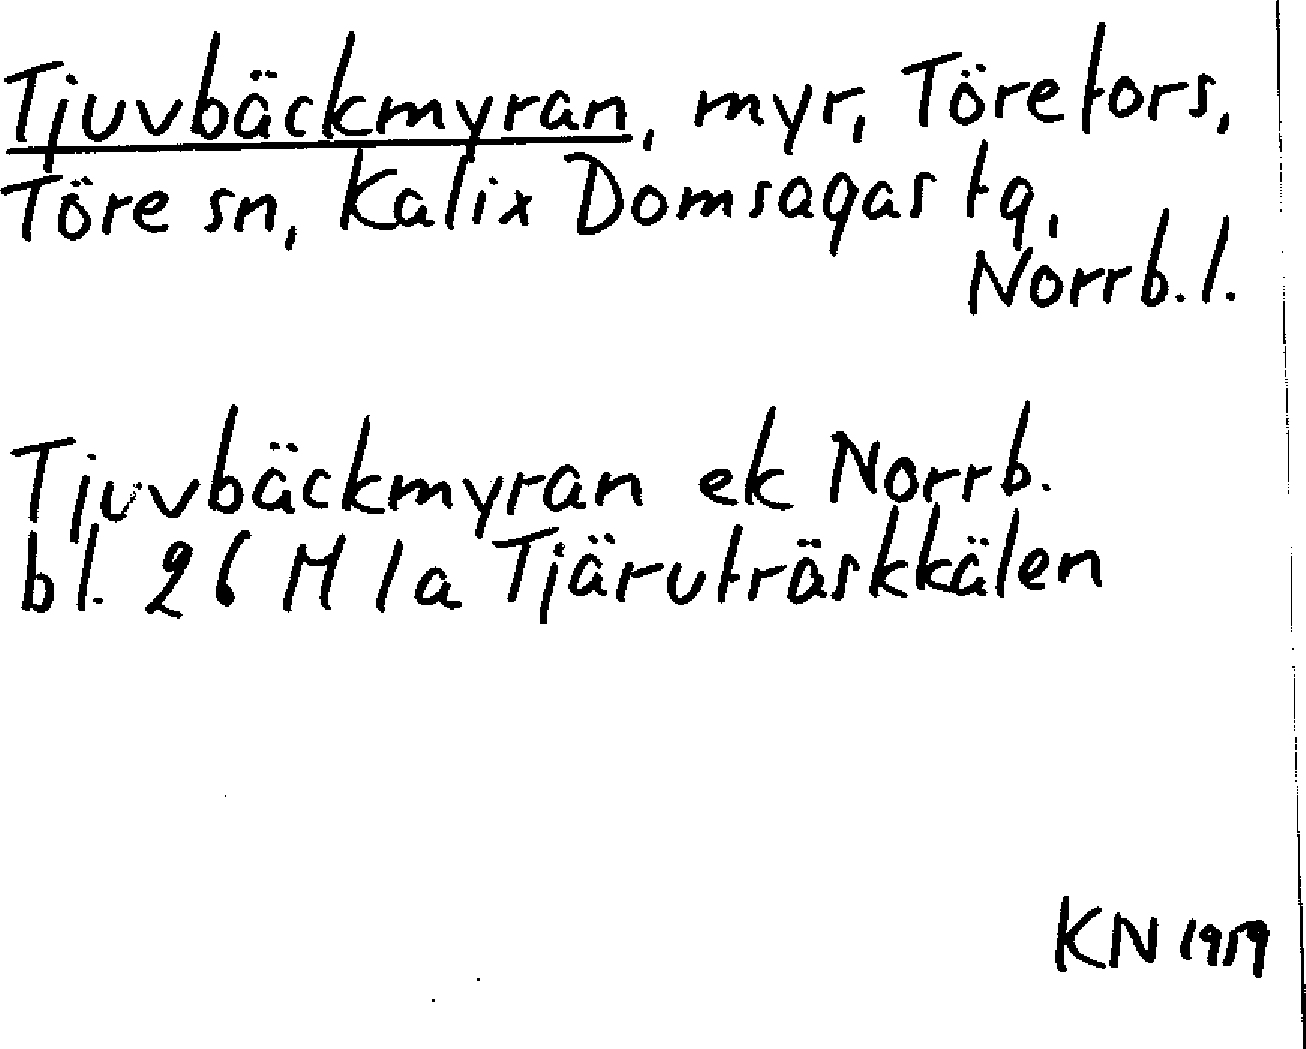 Tjuvbäckmyran, myr, Törefors,
Töre sn, Kalix Domsagas tg,
Norrb. l.
Tjuvbäckmyran ek Norrb.
bl. 26 M 1a Tjäruträskkälen
KN 1959